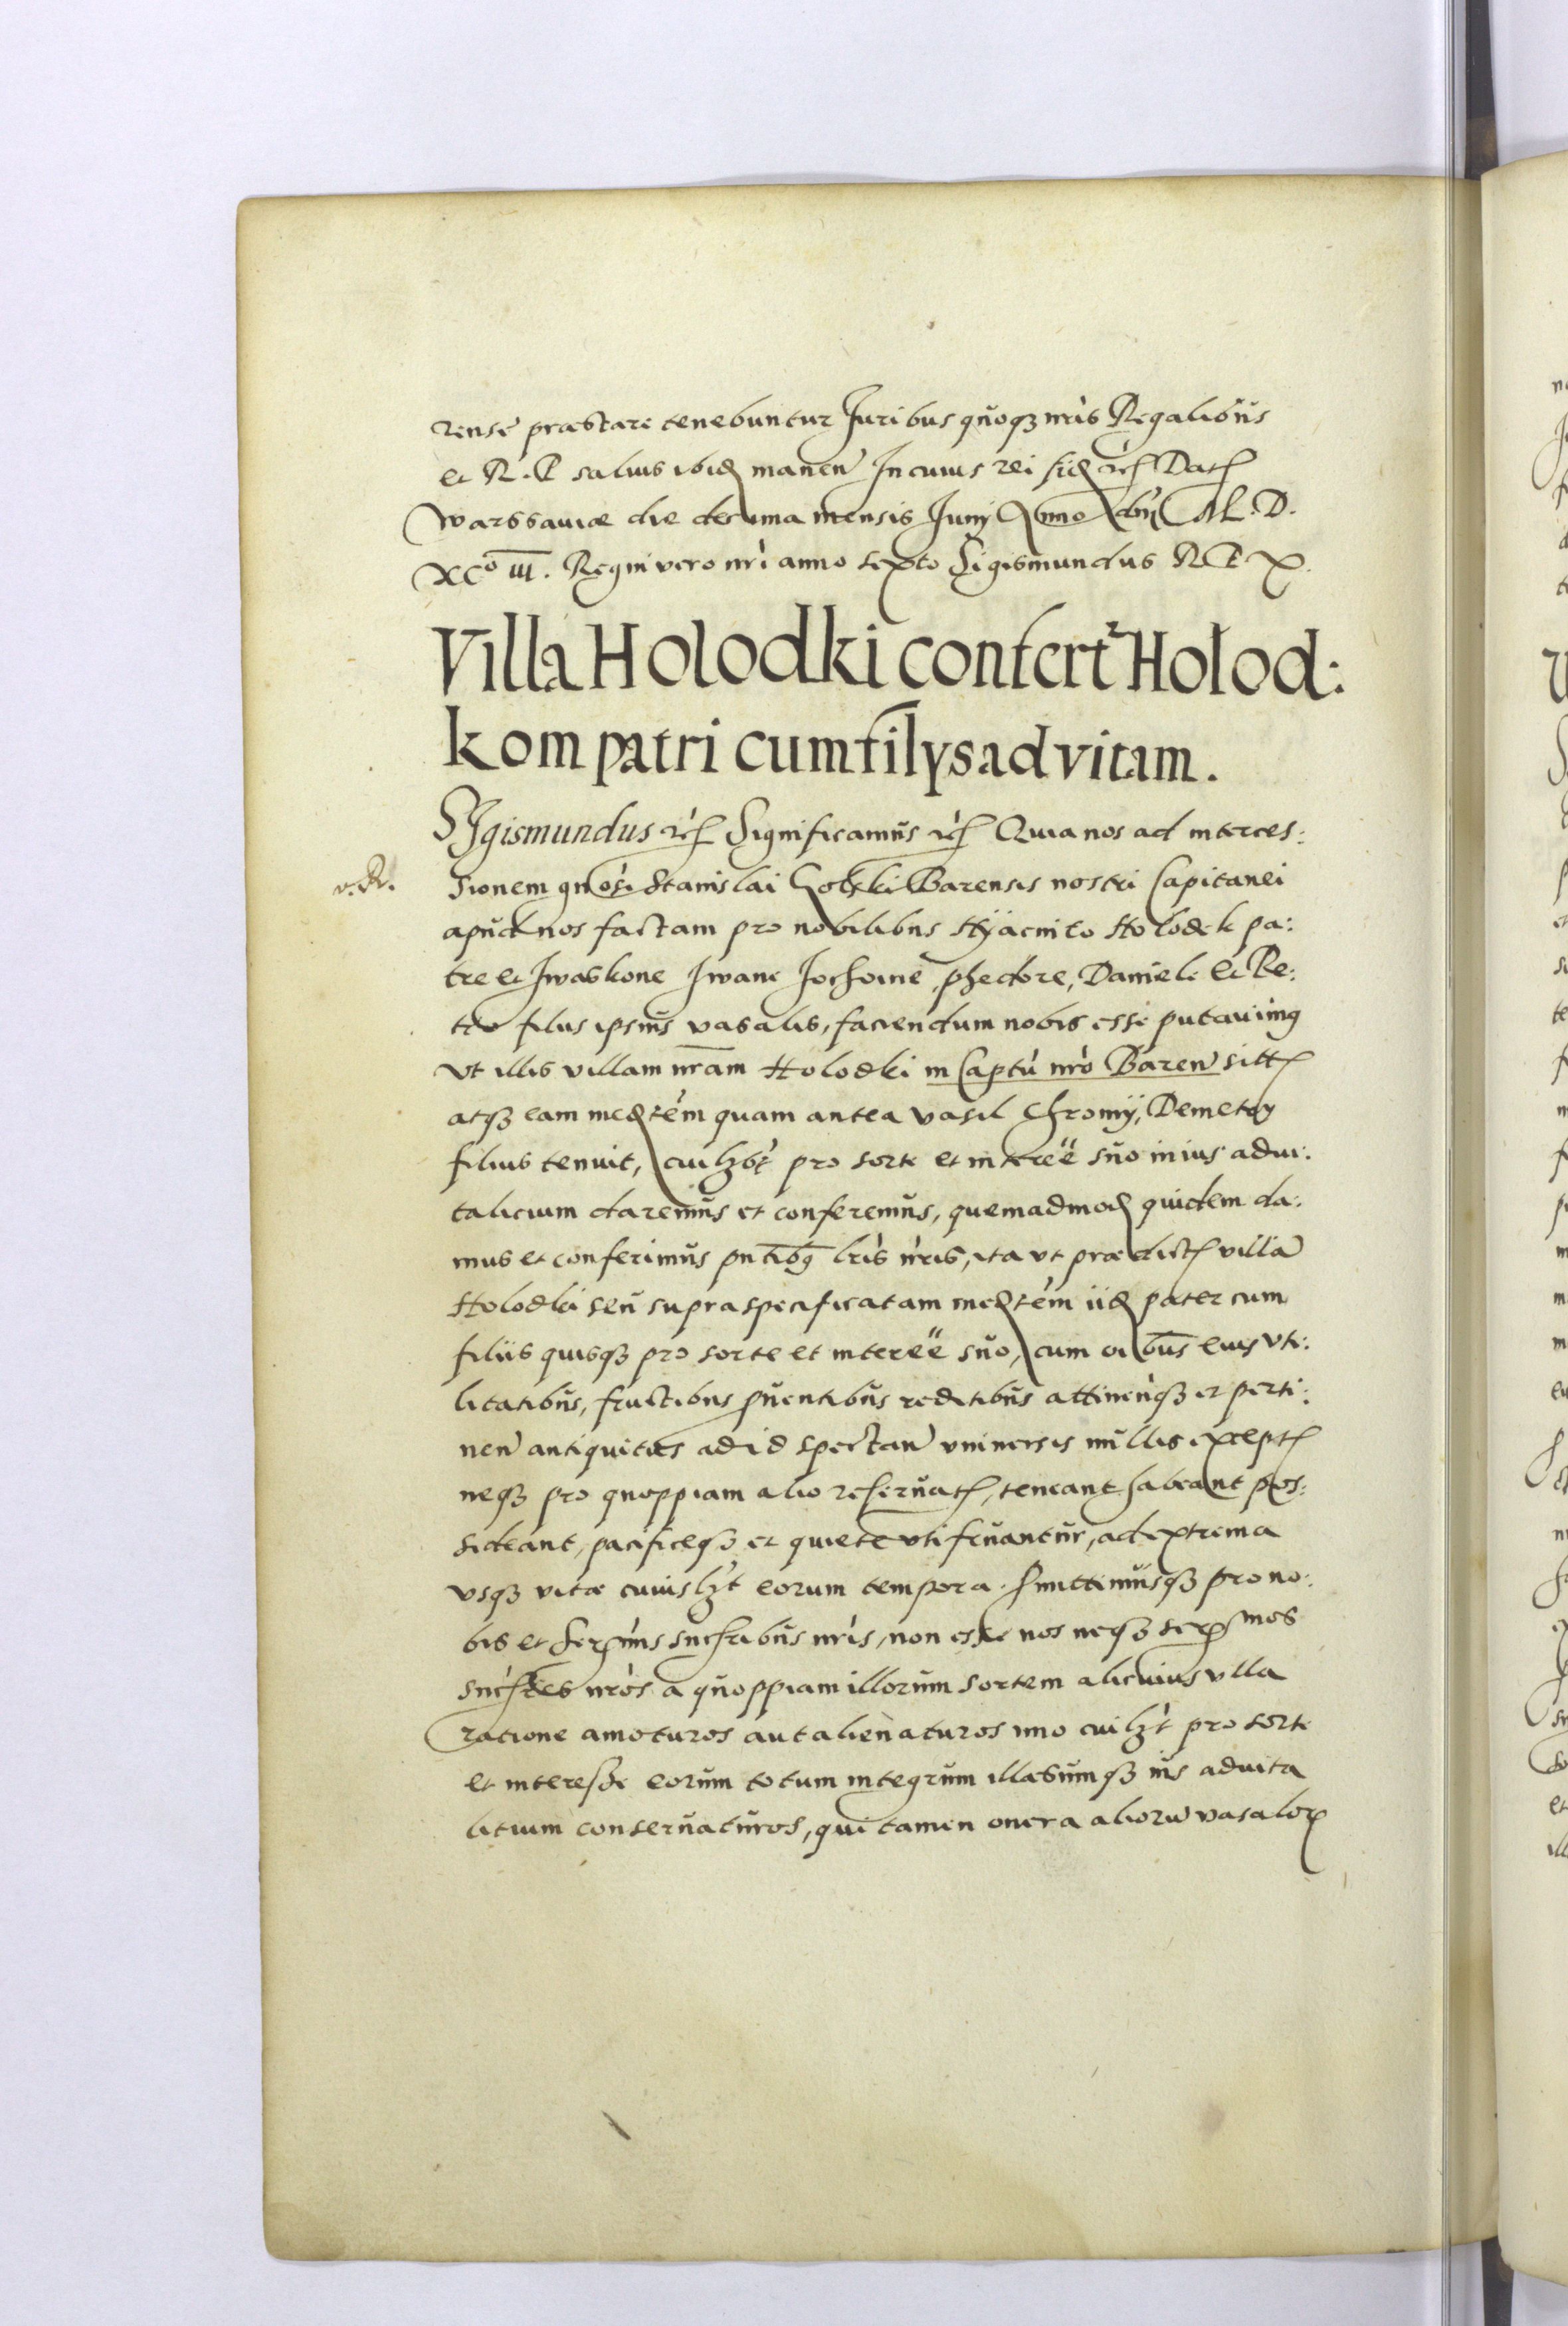 rense præstare tenebuntur Juribus quoqȝ nris Regalibus
et R. P. salvis ibidem manen In cuius rei fid etc Dat
Warssaviæ die decima mensis Junij Anno dni M. D.
XCo III. Regni vero nri anno sexto Sigismundus R P x
Villa Holodki confert Holod:
kom patri cum filÿs ad vitam.
SJgismundus etc Significamus etc Quia nos ad interces:
v. R.
sionem gnosi Stanislai Golski Barensis nostri Capitanei
apud nos factam pro nobilibus Hÿacinto Holodek pa:
tre et Jwaskone Jwane Jochoine, phedore, Daniele et Pe:
tro filiis ipsius vasalis, faciendum nobis esse putavimus
vt illis villam nram Holodki in Captu nro Baren sitt
atqȝ eam medtem quam antea vasil Chromÿ, Demetry
filius tenuit, cuilȝbt pro sorte et interee suo in ius advi:
talicium daremus et conferemus, quemadmod quidem da:
mus et conferimus pntibus lris nris, ita vt prædict villa
Holodki seu supra specificatam medtem iid pater cum
filiis quisqȝ pro sorte et interee suo, cum oibus eius vti:
litatibus, fructibus puentibus reditibus attinenqȝ et perti:
nen antiquitus ad id spectan vniversis nullis except
neqȝ pro quoppiam alio reservat, teneant habeant pos:
sideant, pacificeqȝ et quiete vti fruantur, ad extrema
vsqȝ vitæ cuiuslȝt eorum tempora. Pmittimusqȝ pro no:
bis et Sermis succribus nris, non esse nos neqȝ sermos
succres nros a quoppiam illorum sortem alicuius vlla
ratione amoturos aut alienaturos imo cuilȝt pro sorte
et interesse eorum totum integrum illæsumqȝ ius advita
litium conservaturos, qui tamen onera alioru vasalor